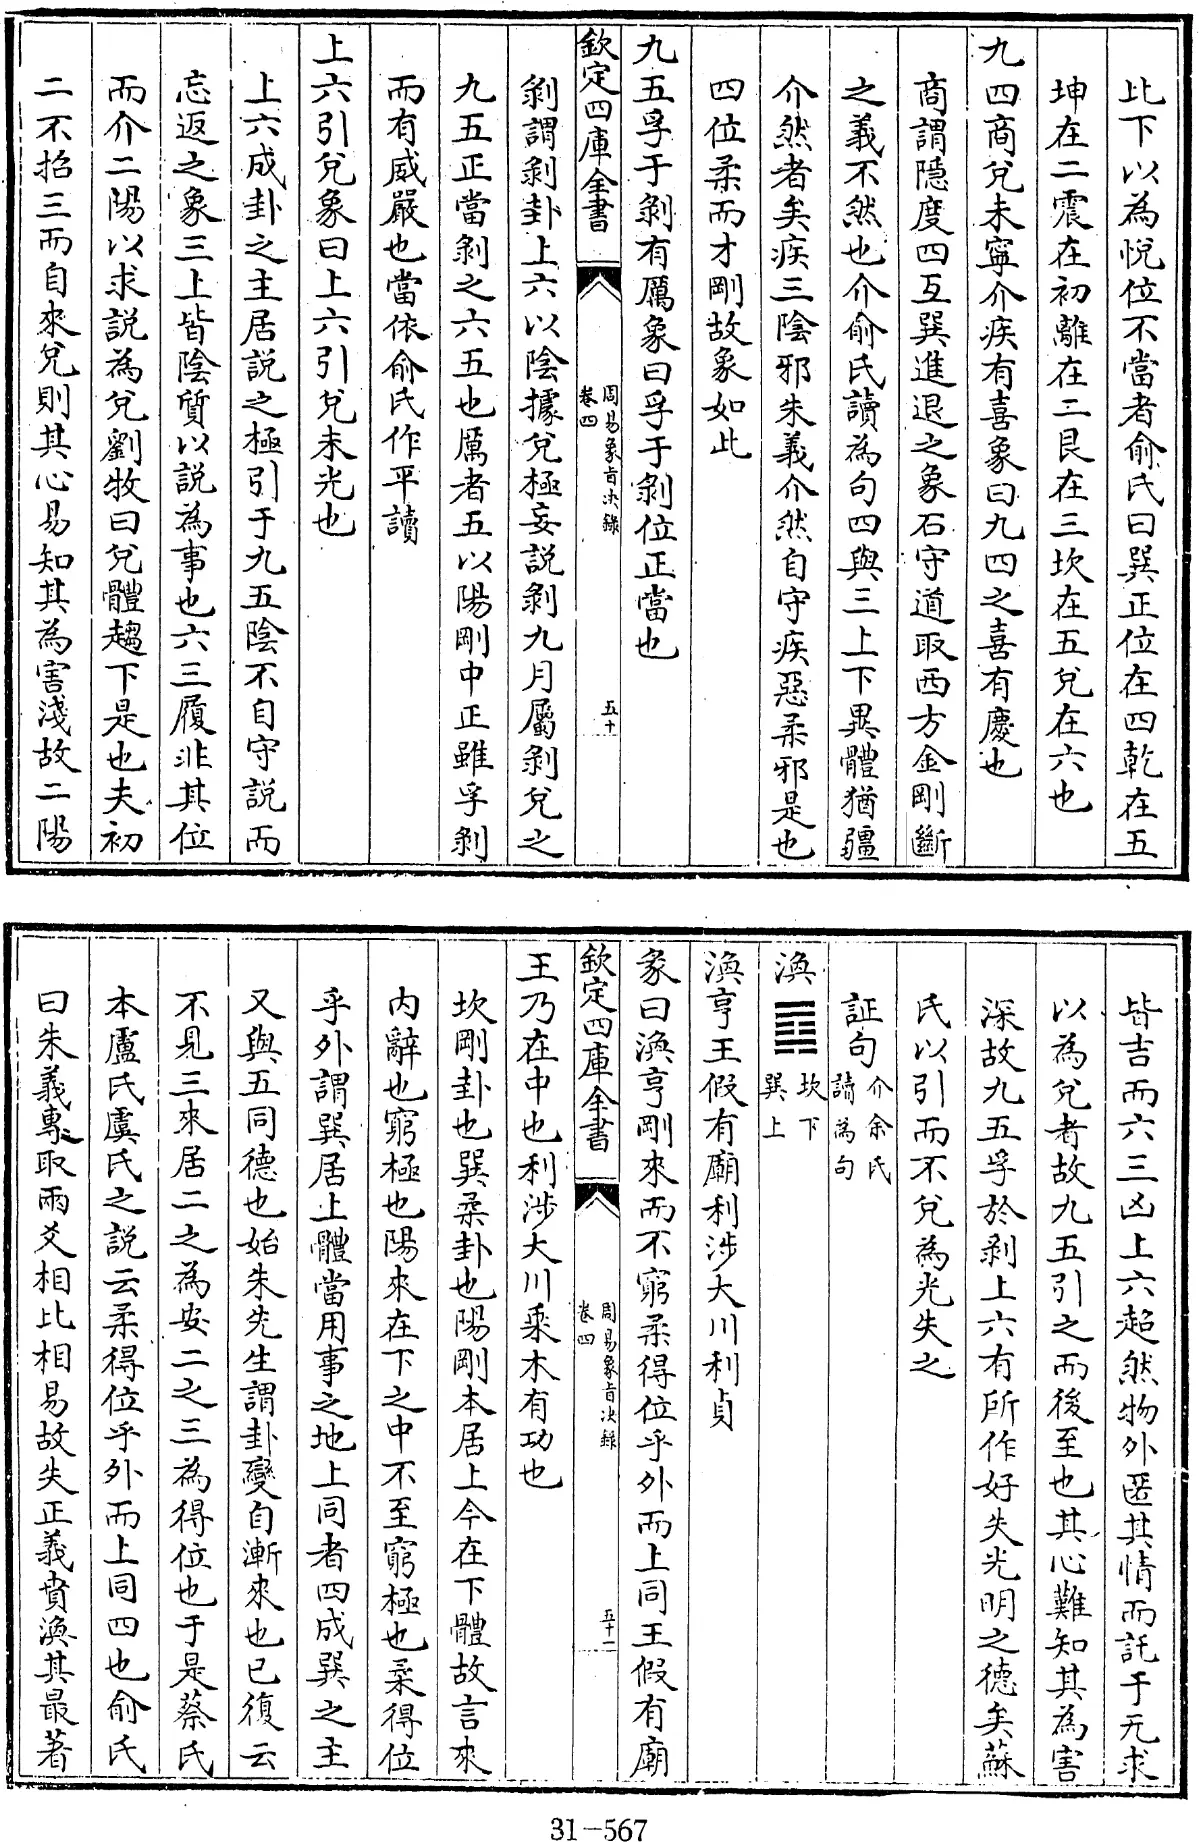 比下以為悅位不當者俞氏曰巽正位在四乾在五
坤在二震在初離在二艮在三坎在五兌在六也
九四商兌未寧介疾有喜象曰九四之喜有慶也
商謂隱度四互巽進退之象石守道取西方金剛斷
之義不然也介俞氏讀為句四與三上下異體猶疆
介然者矣疾三陰邪朱義介然自守疾惡柔邪是也
四位柔而才剛故象如此
九五孚于剝有厲象曰孚于剝位正當也
欽定四庫全書
周易象旨決錄
卷四
五十
剝謂剝卦上六以陰據兌極妄說剝九月屬剝兌之
九五正當剝之六五也厲者五以陽剛中正雖孚剝
而有威嚴也當依俞氏作平讀
上六引兌象曰上六引兌未光也
上六成卦之主居說之極引于九五陰不自守說而
忘返之象三上皆陰質以說為事也六三履非其位
而介二陽以求說為兌劉牧曰兌體趨下是也夫初
二不招三而自來兌則其心易知其為害淺故二陽
皆吉而六三凶上六超然物外匿其情而託于无求
以為兌者故九五引之而後至也其心難知其為害
深故九五孚於剝上六有所作好失光明之德矣蘇
氏以引而不兌為光失之
証句介余氏讀為句
渙䷺坎下巽上
渙亨王假有廟利涉大川利貞
彖曰渙亨剛來而不窮柔得位乎外而上同王假有廟
欽定四庫全書
周易象旨決錄
卷四
五十一
王乃在中也利涉大川乘木有功也
坎剛卦也巽柔卦也陽剛本居上今在下體故言來
內辭也窮極也陽來在下之中不至窮極也柔得位
乎外謂巽居上體當用事之地上同者四成巽之主
又與五同德也始朱先生謂卦變自漸來也已復云
不見三來居二之為安二之三為得位也于是蔡氏
本盧氏虞氏之說云柔得位乎外而上同四也俞氏
曰朱義專取兩爻相比相易故失正義賁渙其最著
31-567